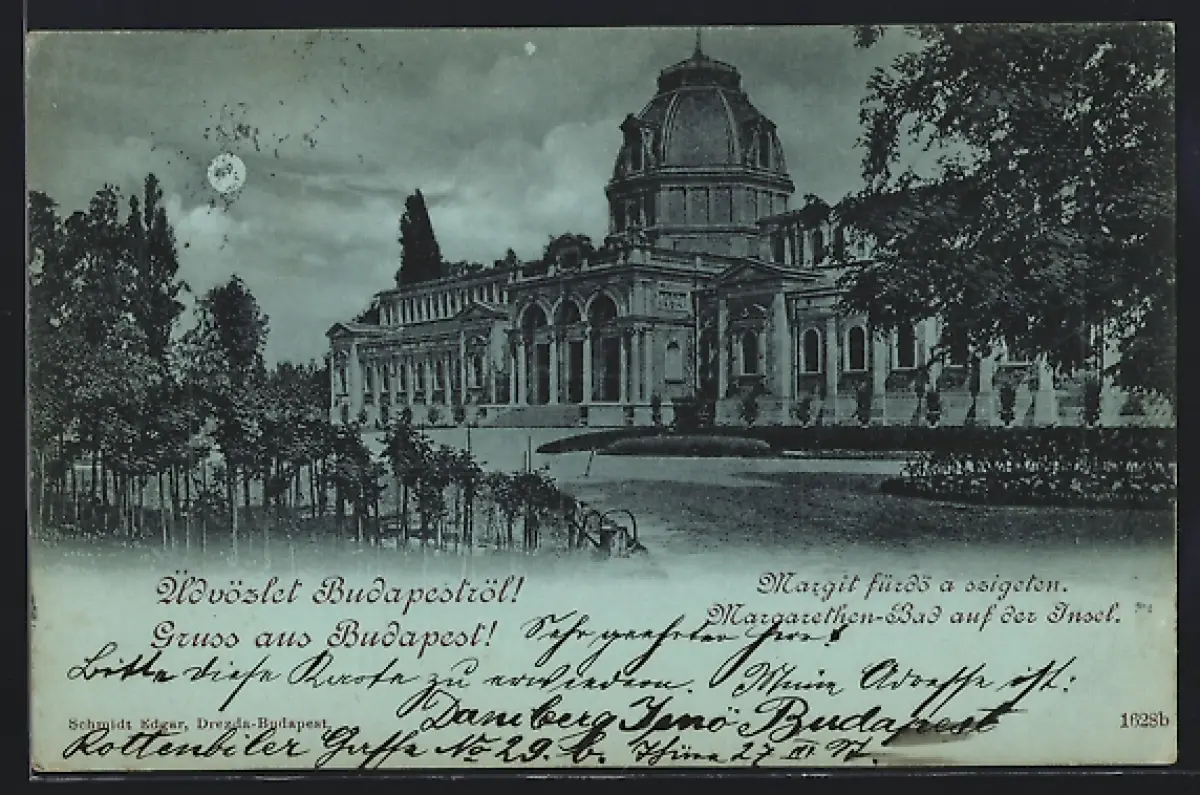 Üdvözlet Budapeströl!
Gruss aus Budapest!
Margit fürdő a szigeten.
Margarethen-Bad auf der Insel.
Sehr geehrter Herr!
Bitte diese Karte zu erwiedern. Meine Adresse ist:
Damberg Jenö Budapest
Rottenbiler Gasse No 29. b. Thüre 27 III St.
Schmidt Edgar, Drezda-Budapest.
1628b